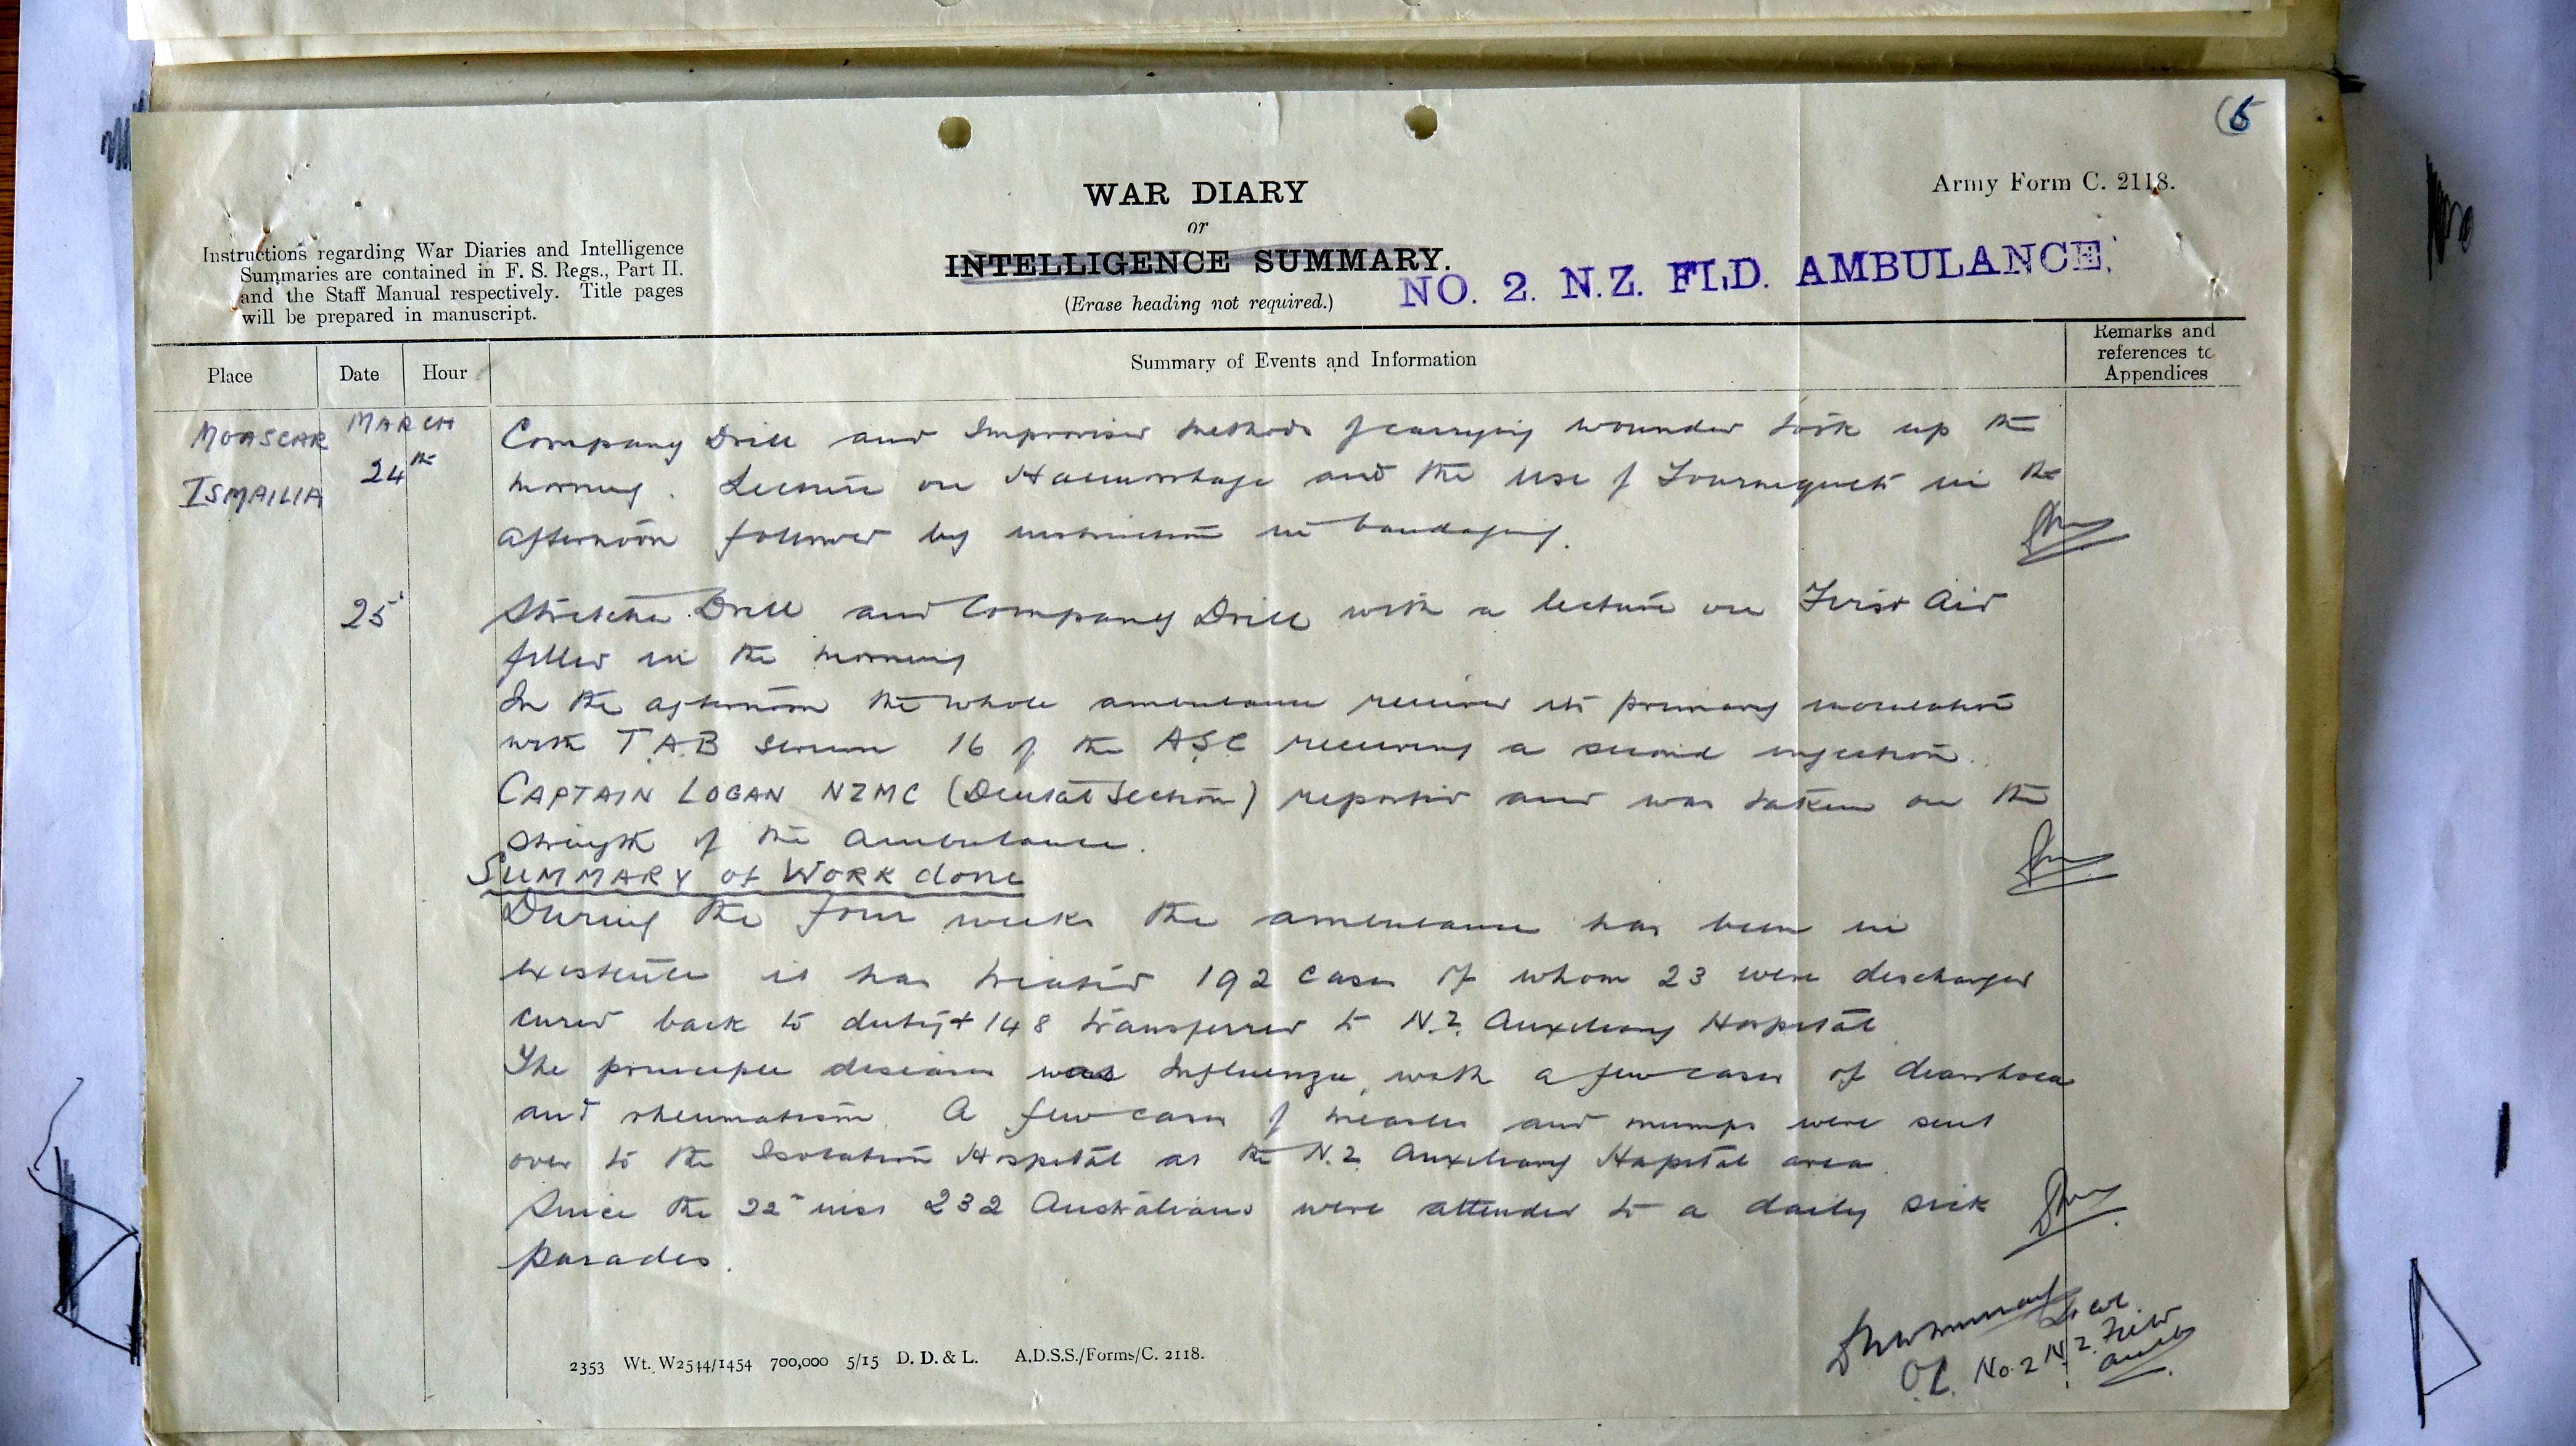 6
Army Form C. 2118.
WAR DIARY
or
INTELLIGENCE SUMMARY.
(Erase heading not required.)
NO. 2. N.Z. FLD. AMBULANCE.
Instructions regarding War Diaries and Intelligence
Summaries are contained in F. S. Regs., Part II.
and the Staff Manual respectively. Title pages
will be prepared in manuscript.
Place
Date
Hour
Summary of Events and Information
Remarks and
references to
Appendices
MOASCAR
ISMAILIA
MARCH
24th
Company Drill and Improvised methods of carrying wounded took up the
morning. Lecture on Haemorrhage and the use of Tourniquets in the
afternoon followed by instruction in bandaging.
25
Stretcher Drill and Company Drill with a lecture on First Aid
filled in the morning
In the afternoon the whole ambulance received its primary inoculation
with T.A.B serum 16 of the ASC receiving a second injection.
CAPTAIN LOGAN NZMC (Dental Section) reported and was taken on the
strength of the ambulance.
SUMMARY of WORK done
During the four weeks the ambulance has been in
existence it has treated 192 cases of whom 23 were discharged
cured back to duty + 148 transferred to N.Z. Auxiliary Hospital
The principle disease was Influenza, with a few cases of diarrhoea
and rheumatism. A few cases of measles and mumps were sent
over to the Isolation Hospital at the N.Z. Auxiliary Hospital area.
Since the 22nd inst 232 Australians were attended to a daily sick
parades.
Lt Col.
O.C. No. 2 N.Z. Field
Amb
2353 Wt. W2544/1454 700,000 5/15 D. D. & L. A.D.S.S./Forms/C. 2118.